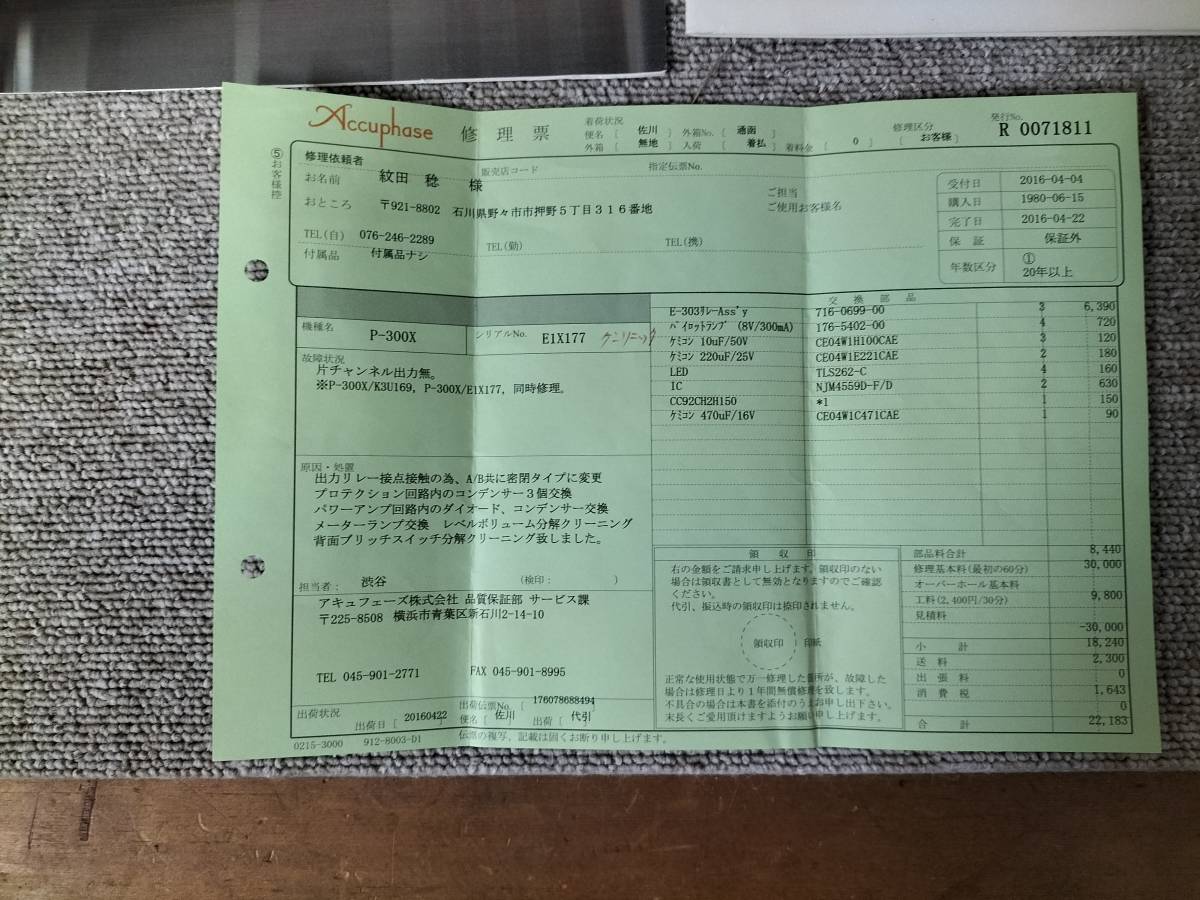 Accuphase 修理票
着荷状況
便名 [ 佐川 ] 外箱No. [ 通函 ]
外箱 [ 無地 ] 入荷 [ 着払 ] 着料金 [ 0 ]
修理区分 [ お客様 ]
発行No.
R 0071811
⑤お客様控
修理依頼者
お名前 紋田 稔 様
販売店コード
指定伝票No.
おところ 〒921-8802 石川県野々市市押野5丁目316番地
ご担当
ご使用お客様名
TEL(自) 076-246-2289 TEL(勤) TEL(携)
付属品 付属品ナシ
受付日 2016-04-04
購入日 1980-06-15
完了日 2016-04-22
保証 保証外
年数区分 ① 20年以上
機種名 P-300X シリアルNo. E1X177
故障状況
片チャンネル出力無。
※P-300X/K3U169, P-300X/E1X177, 同時修理。
原因・処置
出力リレー接点接触の為、A/B共に密閉タイプに変更
プロテクション回路内のコンデンサー3個交換
パワーアンプ回路内のダイオード、コンデンサー交換
メーターランプ交換 レベルボリューム分解クリーニング
背面ブリッチスイッチ分解クリーニング致しました。
担当者: 渋谷 (検印: )
アキュフェーズ株式会社 品質保証部 サービス課
〒225-8508 横浜市青葉区新石川2-14-10
TEL 045-901-2771 FAX 045-901-8995
出荷状況 出荷日 [ 20160422 ]
出荷伝票No. [ 176078688494
便名 [ 佐川 出荷 [ 代引 ]
0215-3000 912-8003-D1 伝票の複写、記載は固くお断り申し上げます。
交換部品
E-303ﾘﾚｰAss'y 716-0699-00 3 6,390
ﾊﾟｲﾛｯﾄﾗﾝﾌﾟ (8V/300mA) 176-5402-00 4 720
ｹﾐｺﾝ 10uF/50V CE04W1H100CAE 3 120
ｹﾐｺﾝ 220uF/25V CE04W1E221CAE 2 180
LED TLS262-C 4 160
IC NJM4559D-F/D 2 630
CC92CH2H150 *1 1 150
ｹﾐｺﾝ 470uF/16V CE04W1C471CAE 1 90
領収印
右の金額をご請求申し上げます。領収印のない
場合は領収書として無効となりますのでご確認
ください。
代引、振込時の領収印は捺印されません。
領収印 印紙
正常な使用状態で万一修理した箇所が、故障した
場合は修理日より1年間無償修理を致します。
不具合の場合は本書を添付のうえお申し出下さい。
末長くご愛用頂けますようお願い申し上げます。
部品料合計 8,440
修理基本料(最初の60分) 30,000
オーバーホール基本料
工料(2,400円/30分) 9,800
見積料
-30,000
小計 18,240
送料 2,300
出張料 0
消費税 1,643
0
合計 22,183